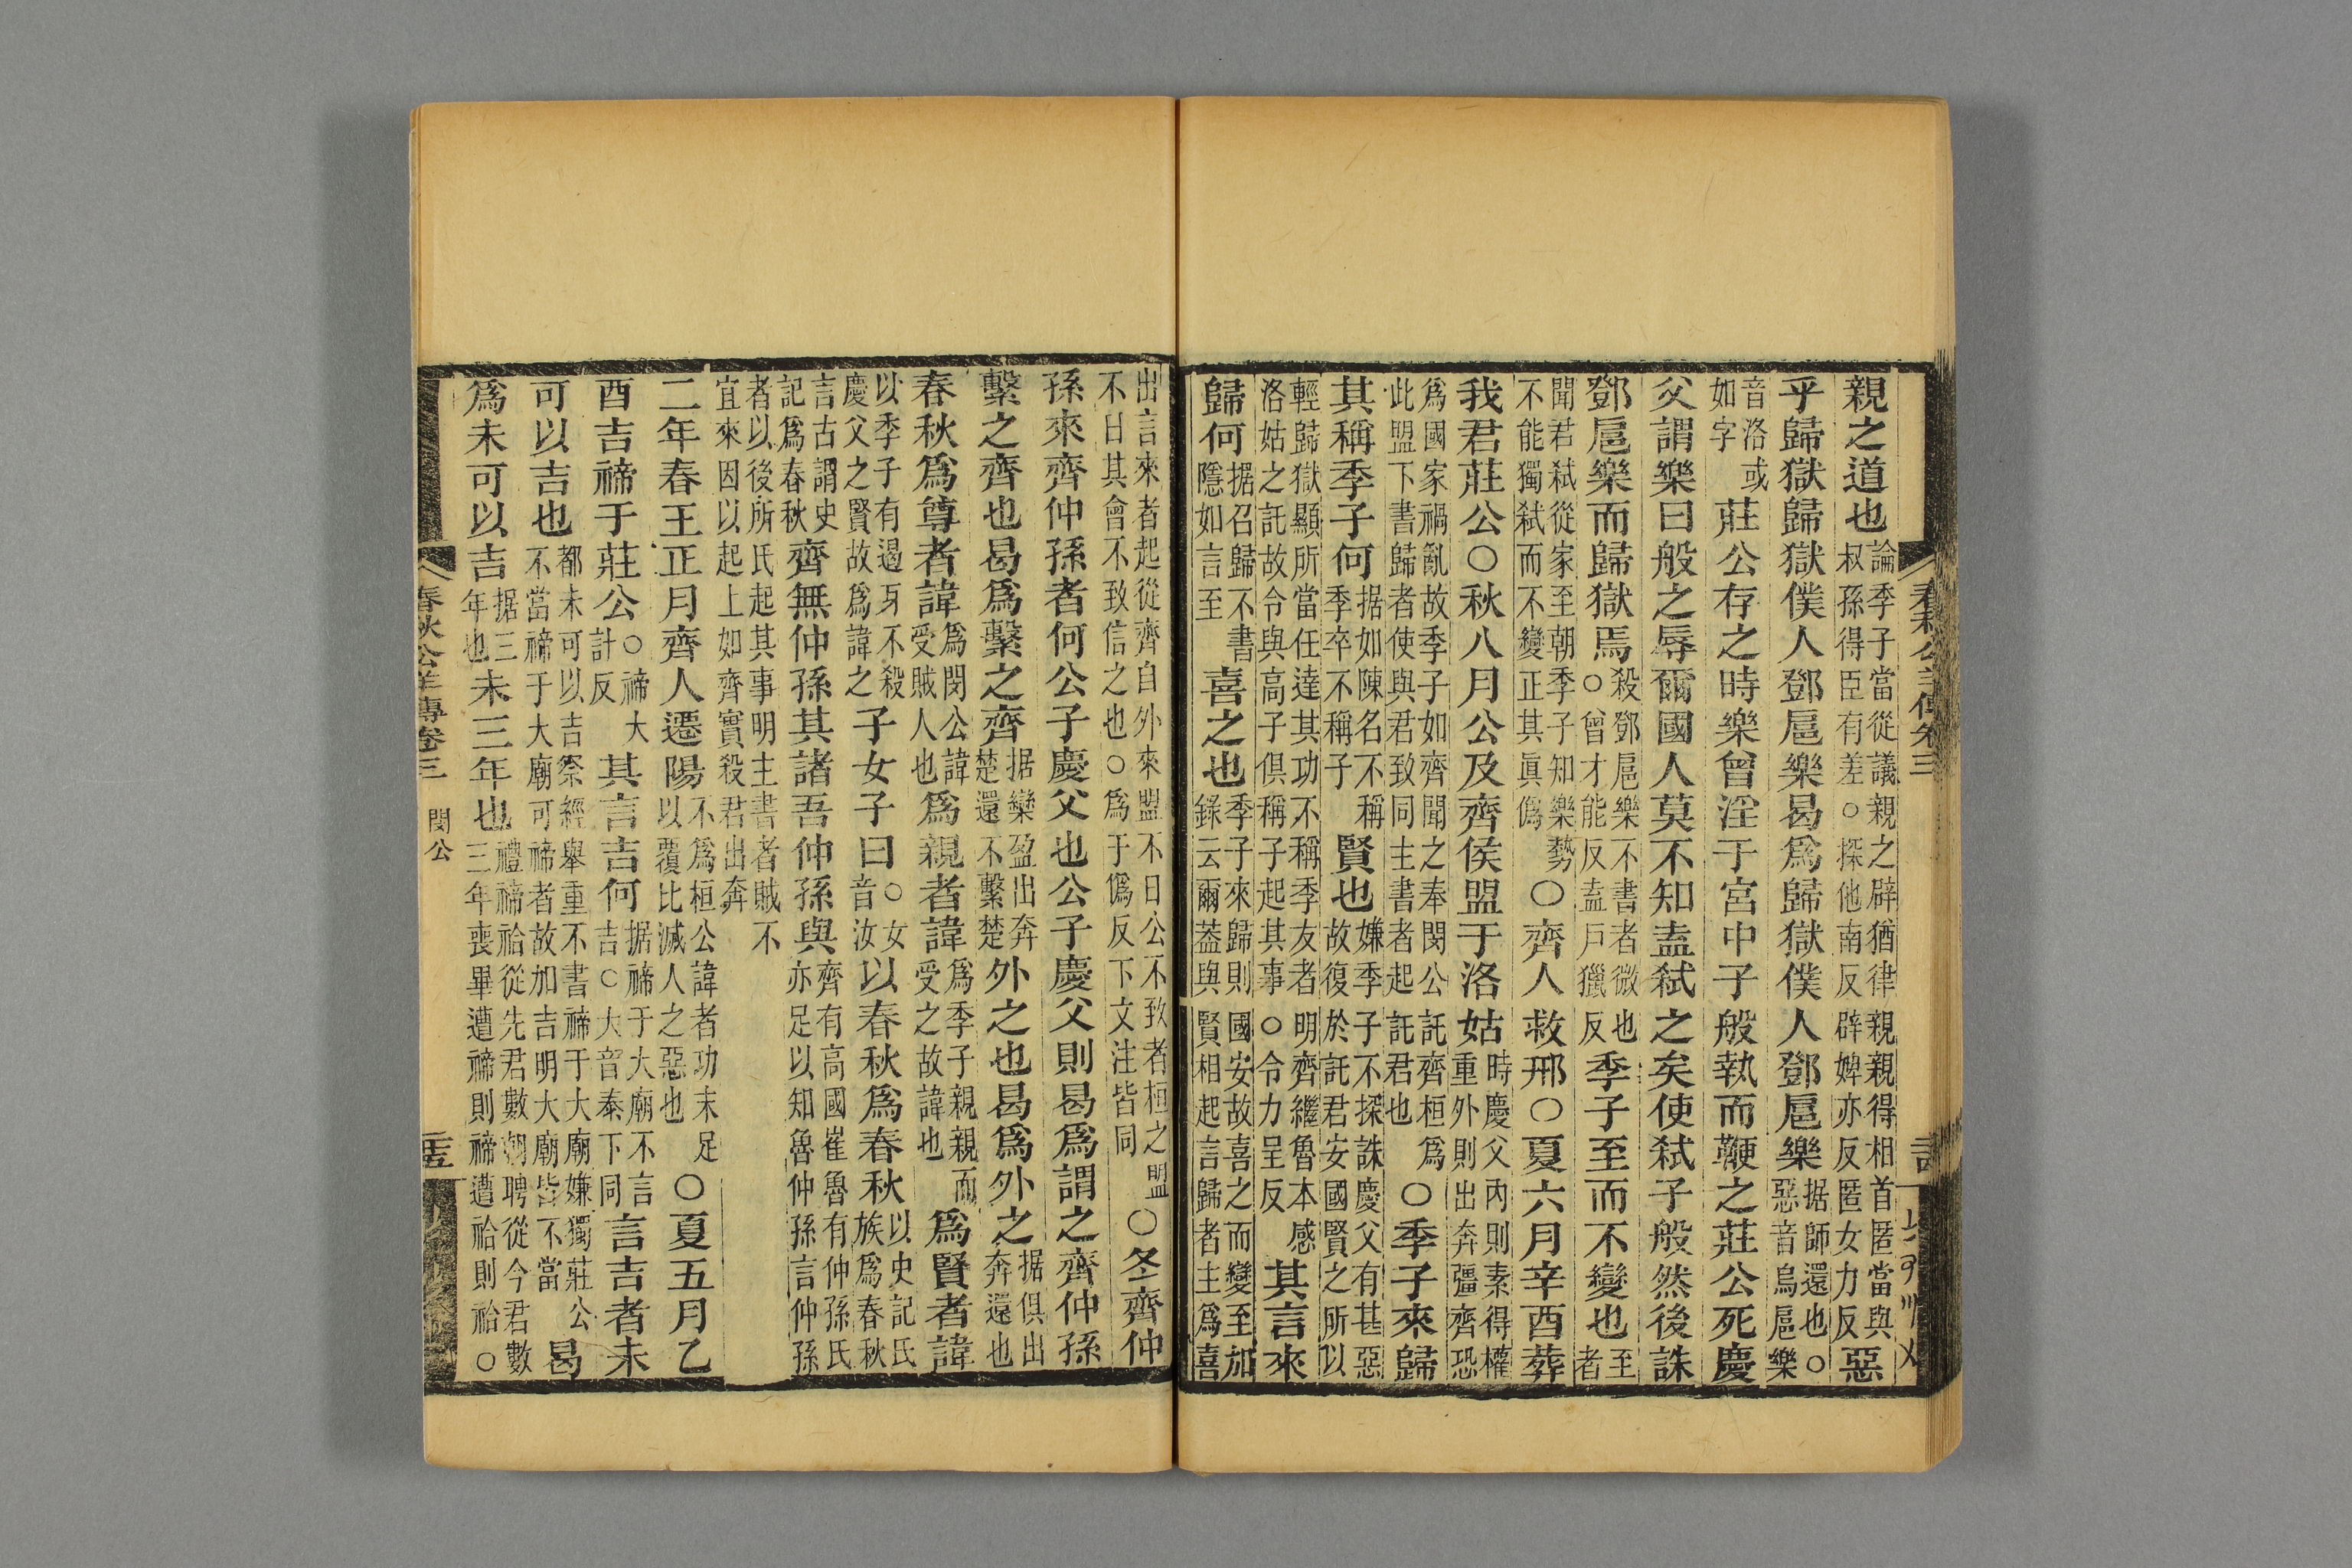 春秋公羊傳卷三
親之道也論季子當從議親之辟猶律親親得相首匿當與叔孫得臣有差○探他南反辟婢亦反匿女力反惡
乎歸獄歸獄僕人鄧扈樂曷爲歸獄僕人鄧扈樂据師還也○惡音烏扈樂
音洛或如字莊公存之時樂曾淫于宮中子般執而鞭之莊公死慶
父謂樂曰般之辱爾國人莫不知盍弒之矣使弒子般然後誅
鄧扈樂而歸獄焉殺鄧扈樂不書者微也○曾才能反盍戸獵反季子至而不變也至者
聞君弒從家至朝季子知樂勢不能獨弒而不變正其眞僞○齊人救邢○夏六月辛酉葬
我君莊公○秋八月公及齊侯盟于洛姑時慶父內則素得權重外則出奔彊齊恐
爲國家禍亂故季子如齊聞之奉閔公託齊桓爲此盟下書歸者使與君致同主書者起託君也○季子來歸
其稱季子何据如陳名不稱季卒不稱子賢也嫌季子不探誅慶父有甚惡故復於託君安國賢之所以
輕歸獄顯所當任達其功不稱季友者明齊繼魯本感洛姑之託故令與高子俱稱子起其事○令力呈反其言來
歸何据召歸不書隱如言至喜之也季子來歸則國安故喜之而變至加錄云爾葢與賢相起言歸者主爲喜
出言來者起從齊自外來盟不日公不致者桓之盟不日其會不致信之也○爲于僞反下文注皆同○冬齊仲
孫來齊仲孫者何公子慶父也公子慶父則曷爲謂之齊仲孫
繫之齊也曷爲繫之齊据欒盈出奔楚還不繫楚外之也曷爲外之据俱出奔還也
春秋爲尊者諱爲閔公諱受賊人也爲親者諱爲季子親親而受之故諱也爲賢者諱
以季子有遏牙不殺慶父之賢故爲諱之子女子曰○女音汝以春秋爲春秋以史記氏族爲春秋
言古謂史記爲春秋齊無仲孫其諸吾仲孫與齊有高國崔魯有仲孫氏亦足以知魯仲孫言仲孫
者以後所氏起其事明主書者賊不宜來因以起上如齊實殺君出奔
二年春王正月齊人遷陽不爲桓公諱者功末足以覆比滅人之惡也○夏五月乙
酉吉禘于莊公○禘大計反其言吉何据禘于大廟不言吉○大音泰下同言吉者未
可以吉也都未可以吉祭經舉重不書禘于大廟嫌獨莊公不當禘于大廟可禘者故加吉明大廟皆不當曷
爲未可以吉据三年也未三年也禮禘祫從先君數朝聘從今君數三年喪畢遭禘則禘遭祫則祫○
春秋公羊傳卷三 閔公 二十五